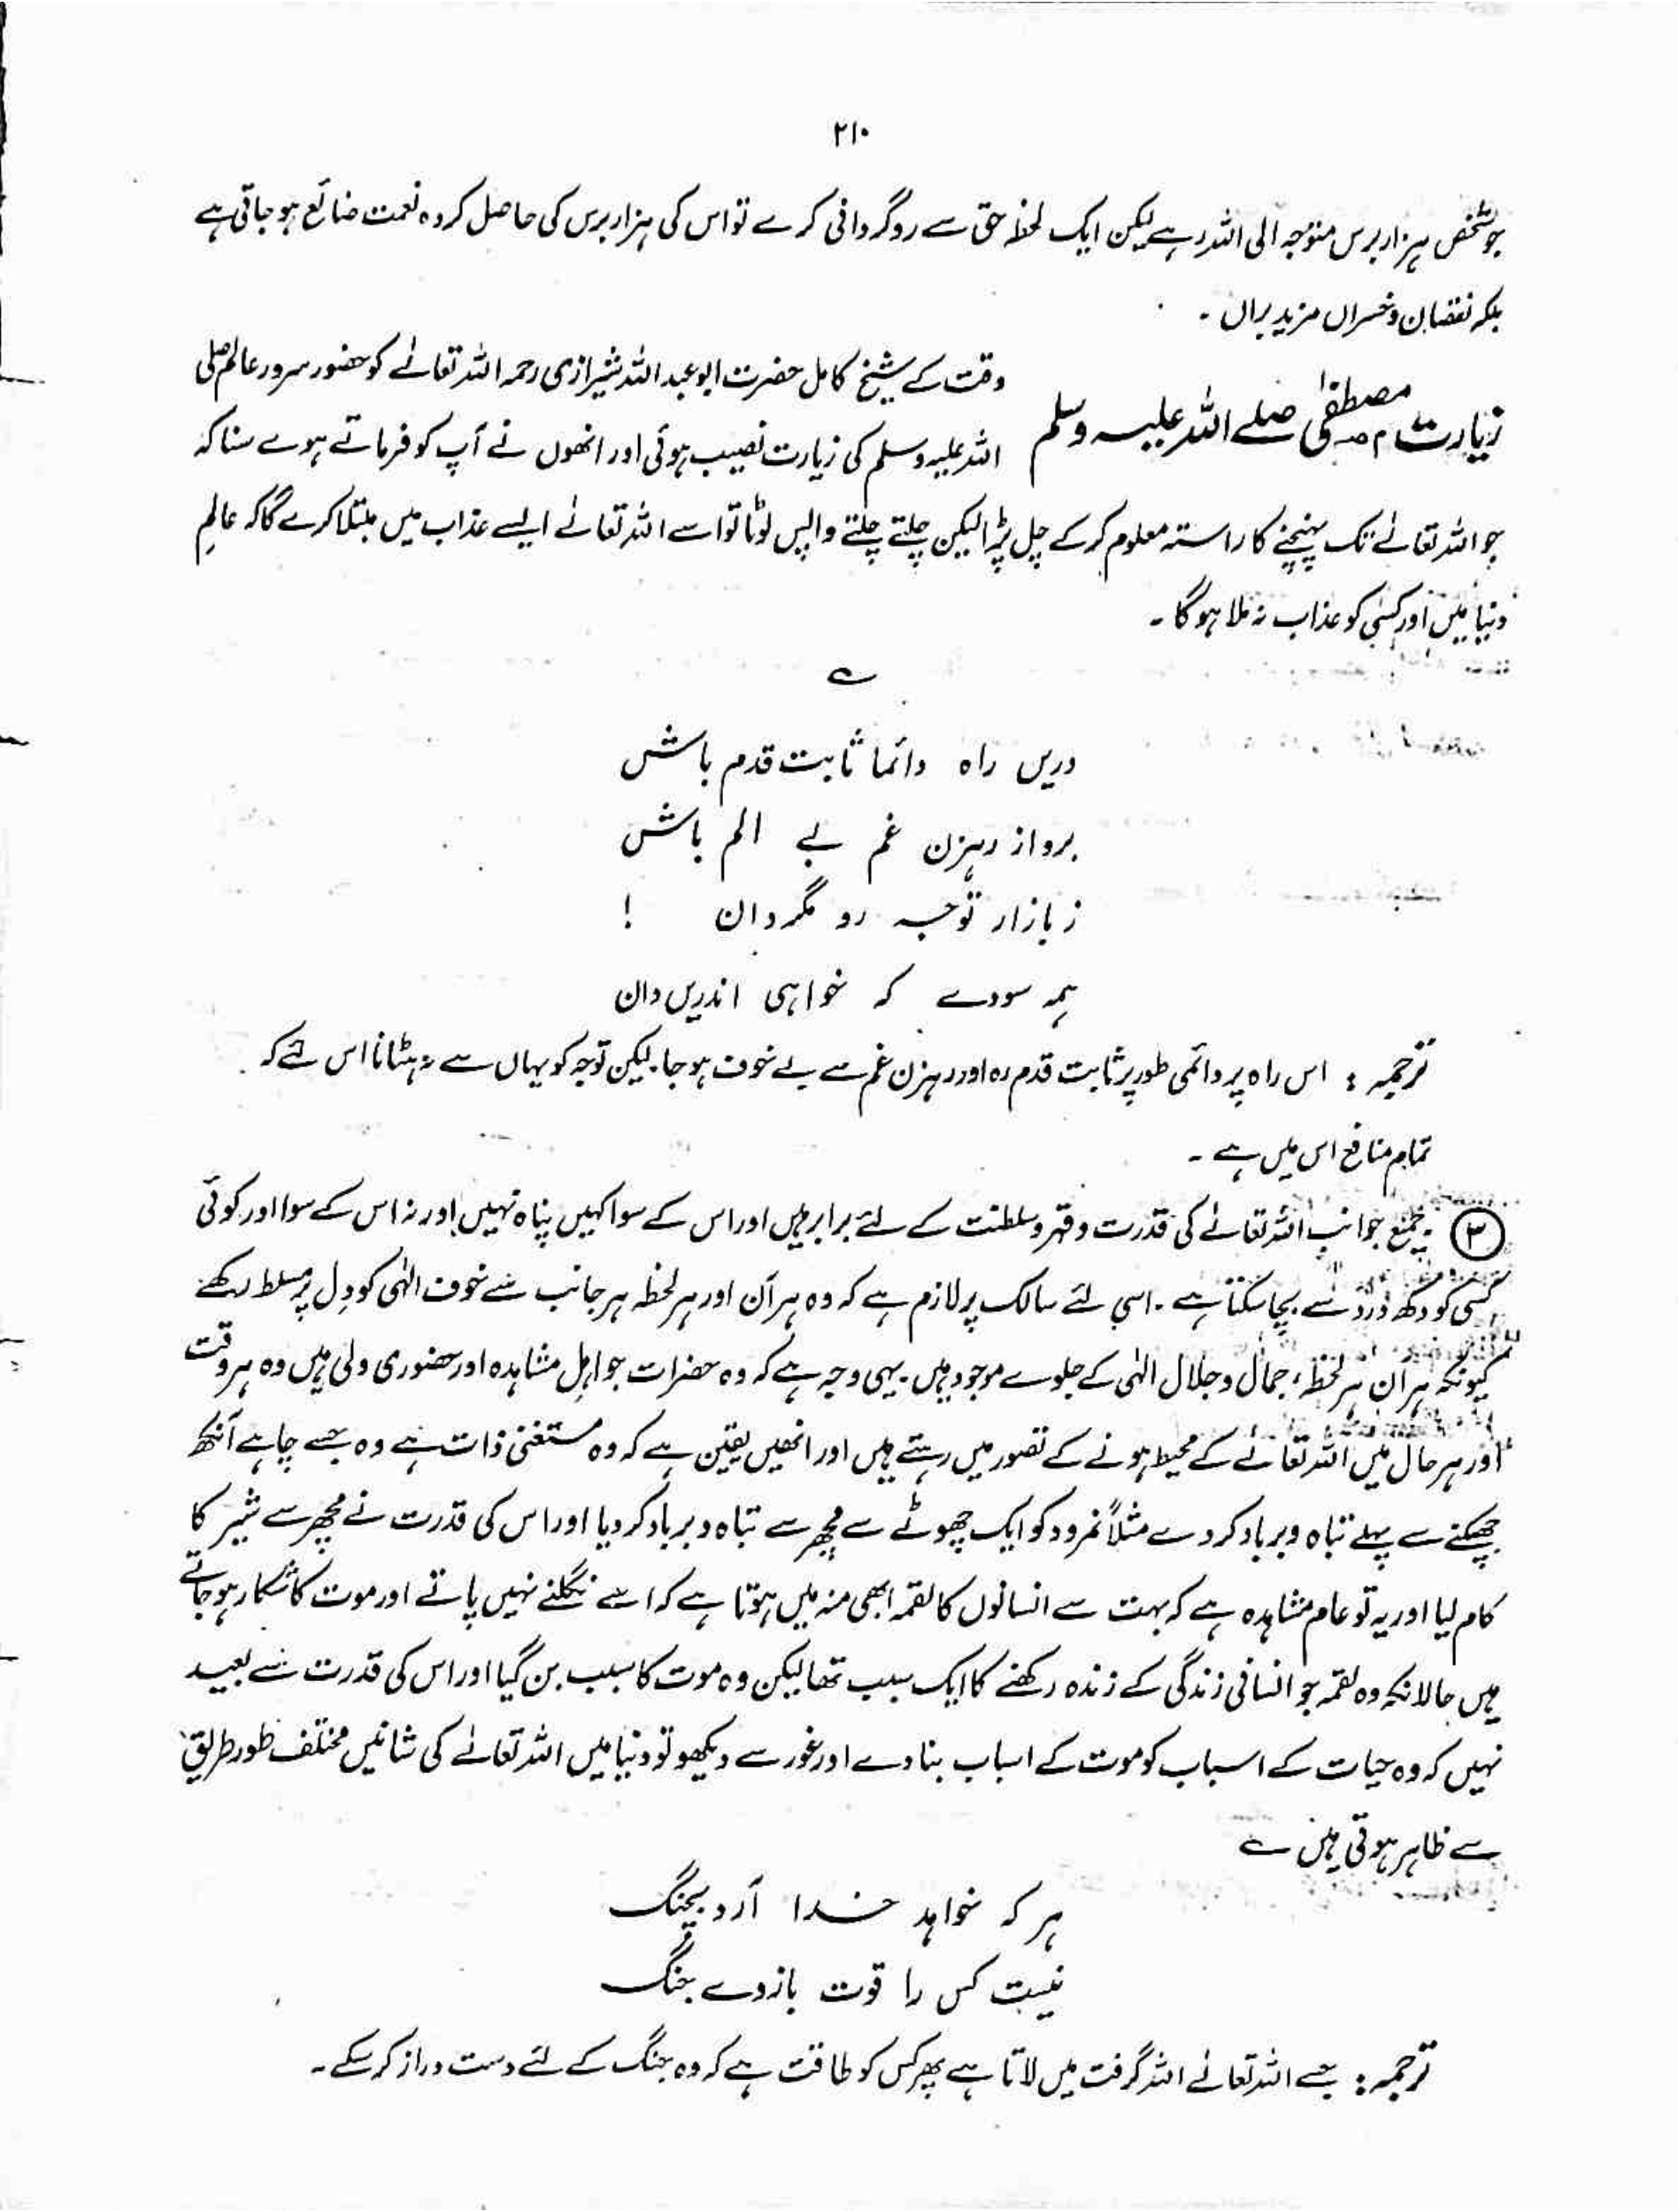 ۲۱۰
جو شخص ہزار برس متوجہ الی اللہ رہے لیکن ایک لحظہ حق سے روگردانی کرے تو اس کی ہزار برس کی حاصل کردہ نعمت ضائع ہو جاتی ہے
بلکہ نقصان و خسران مزید برآں ۔
زیارت مصطفیٰ صلے اللہ علیہ وسلم
وقت کے شیخ کامل حضرت ابو عبد اللہ شیرازی رحمہ اللہ تعالےٰ کو حضور سرور عالم صلی
اللہ علیہ وسلم کی زیارت نصیب ہوئی اور انھوں نے آپ کو فرماتے ہوے سنا کہ
جو اللہ تعالےٰ تک پہنچنے کا راستہ معلوم کر کے چل پڑا لیکن چلتے چلتے واپس لوٹا تو اسے اللہ تعالےٰ ایسے عذاب میں مبتلا کرے گا کہ عالمِ
دنیا میں اور کسی کو عذاب نہ ملا ہو گا ۔
؎
دریں راہ دائما ثابت قدم باش
برو از رہزن غم بے الم باش
ز بازار توجہ رو مگردان !
ہمہ سودے کہ خواہی اندریں دان
ترجمہ : اس راہ پر دائمی طور پر ثابت قدم رہ اور رہزن غم سے بے خوف ہو جا۔ لیکن توجہ کو یہاں سے نہ ہٹانا اس لئے کہ
تمام منافع اس میں ہے ۔
③ جمیع جوانب اللہ تعالےٰ کی قدرت و قہر و سلطنت کے لئے برابر ہیں اور اس کے سوا کہیں پناہ نہیں اور نہ اس کے سوا اور کوئی
کسی کو دکھ درد سے بچا سکتا ہے ۔ اسی لئے سالک پر لازم ہے کہ وہ ہر آن اور ہر لحظہ ہر جانب سے خوف الٰہی کو دِل پر مسلط رکھے
کیونکہ ہر آن ہر لحظہ، جمال و جلال الٰہی کے جلوے موجود ہیں۔ یہی وجہ ہے کہ وہ حضرات جو اہلِ مشاہدہ اور حضوری ولی ہیں وہ ہر وقت
اور ہر حال میں اللہ تعالےٰ کے محیط ہونے کے تصور میں رہتے ہیں اور انھیں یقین ہے کہ وہ مستغنی ذات ہے وہ جسے چاہے آنکھ
جھپکنے سے پہلے تباہ و برباد کر دے مثلاً نمرود کو ایک چھوٹے سے مچھر سے تباہ و برباد کر دیا اور اس کی قدرت نے مچھر سے شیر کا
کام لیا اور یہ تو عام مشاہدہ ہے کہ بہت سے انسانوں کا لقمہ ابھی منہ میں ہوتا ہے کہ اسے نگلنے نہیں پاتے اور موت کا شکار ہو جاتے
ہیں حالانکہ وہ لقمہ جو انسانی زندگی کے زندہ رکھنے کا ایک سبب تھا لیکن وہ موت کا سبب بن گیا اور اس کی قدرت سے بعید
نہیں کہ وہ حیات کے اسباب کو موت کے اسباب بنا دے اور غور سے دیکھو تو دنیا میں اللہ تعالےٰ کی شانیں مختلف طور طریق
سے ظاہر ہوتی ہیں ؎
ہر کہ خواہد خدا آرد بچنگ
نیست کس را قوت بازوے جنگ
ترجمہ : جسے اللہ تعالےٰ اللہ گرفت میں لاتا ہے پھر کس کو طاقت ہے کہ وہ جنگ کے لئے دست دراز کر سکے ۔